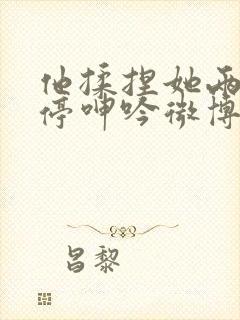 他揉捏她两
停呻吟微博
昌黎